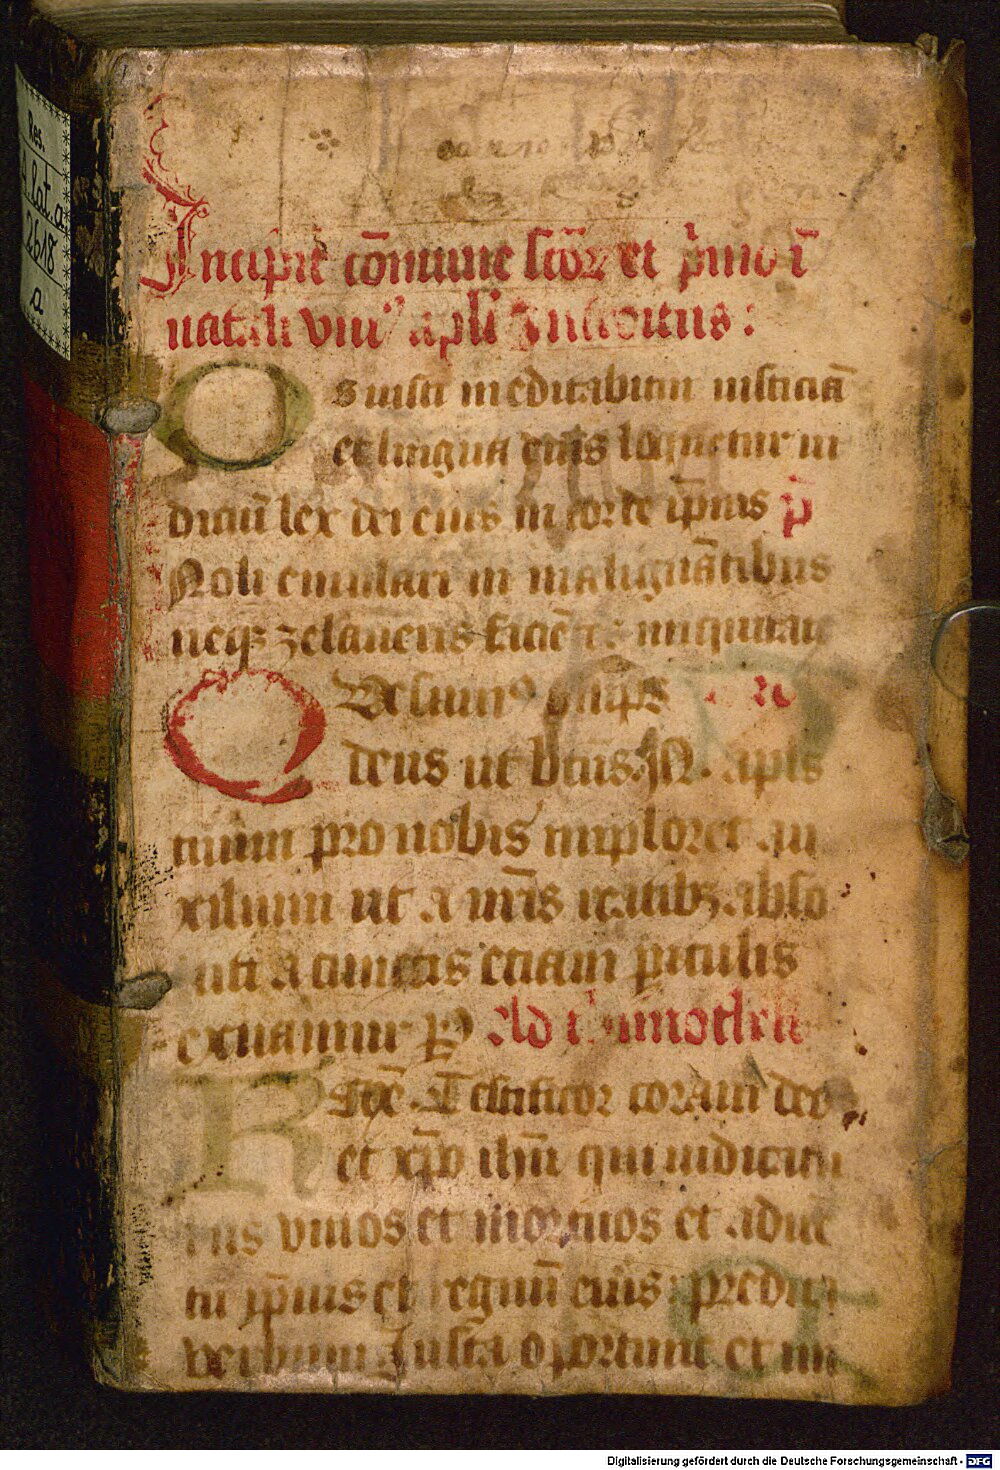 Res.
A. lat. a.
2618
a
Incipit cōmune scōꝝ et p̄mo ī
natali vniꝰ apl̄i Introitus :
Os iusti meditabitur iusticiā
et lingua eius loquetur iu
diciū lex dei eius in corde ip̄ius p̄
Noli emulari in malignātibus
neqꝫ zelaueris faciētes iniquitatē
QVesumꝰ om̄ps
deus ut btūs N. apl̄s
tuum pro nobis imploret au
xilium ut a nr̄is reatibꝫ abso
luti a cunctis etiam p̲iculis
exuamur p̲ Ad Timotheū
Rffē Testificor coram deo
et xp̄o ihū qui iudicatu
rus viuos et mortuos et aduē
tū ip̄ius et regnū eius predica
verbum Insta oportune et im
Digitalisierung gefördert durch die Deutsche Forschungsgemeinschaft - DFG